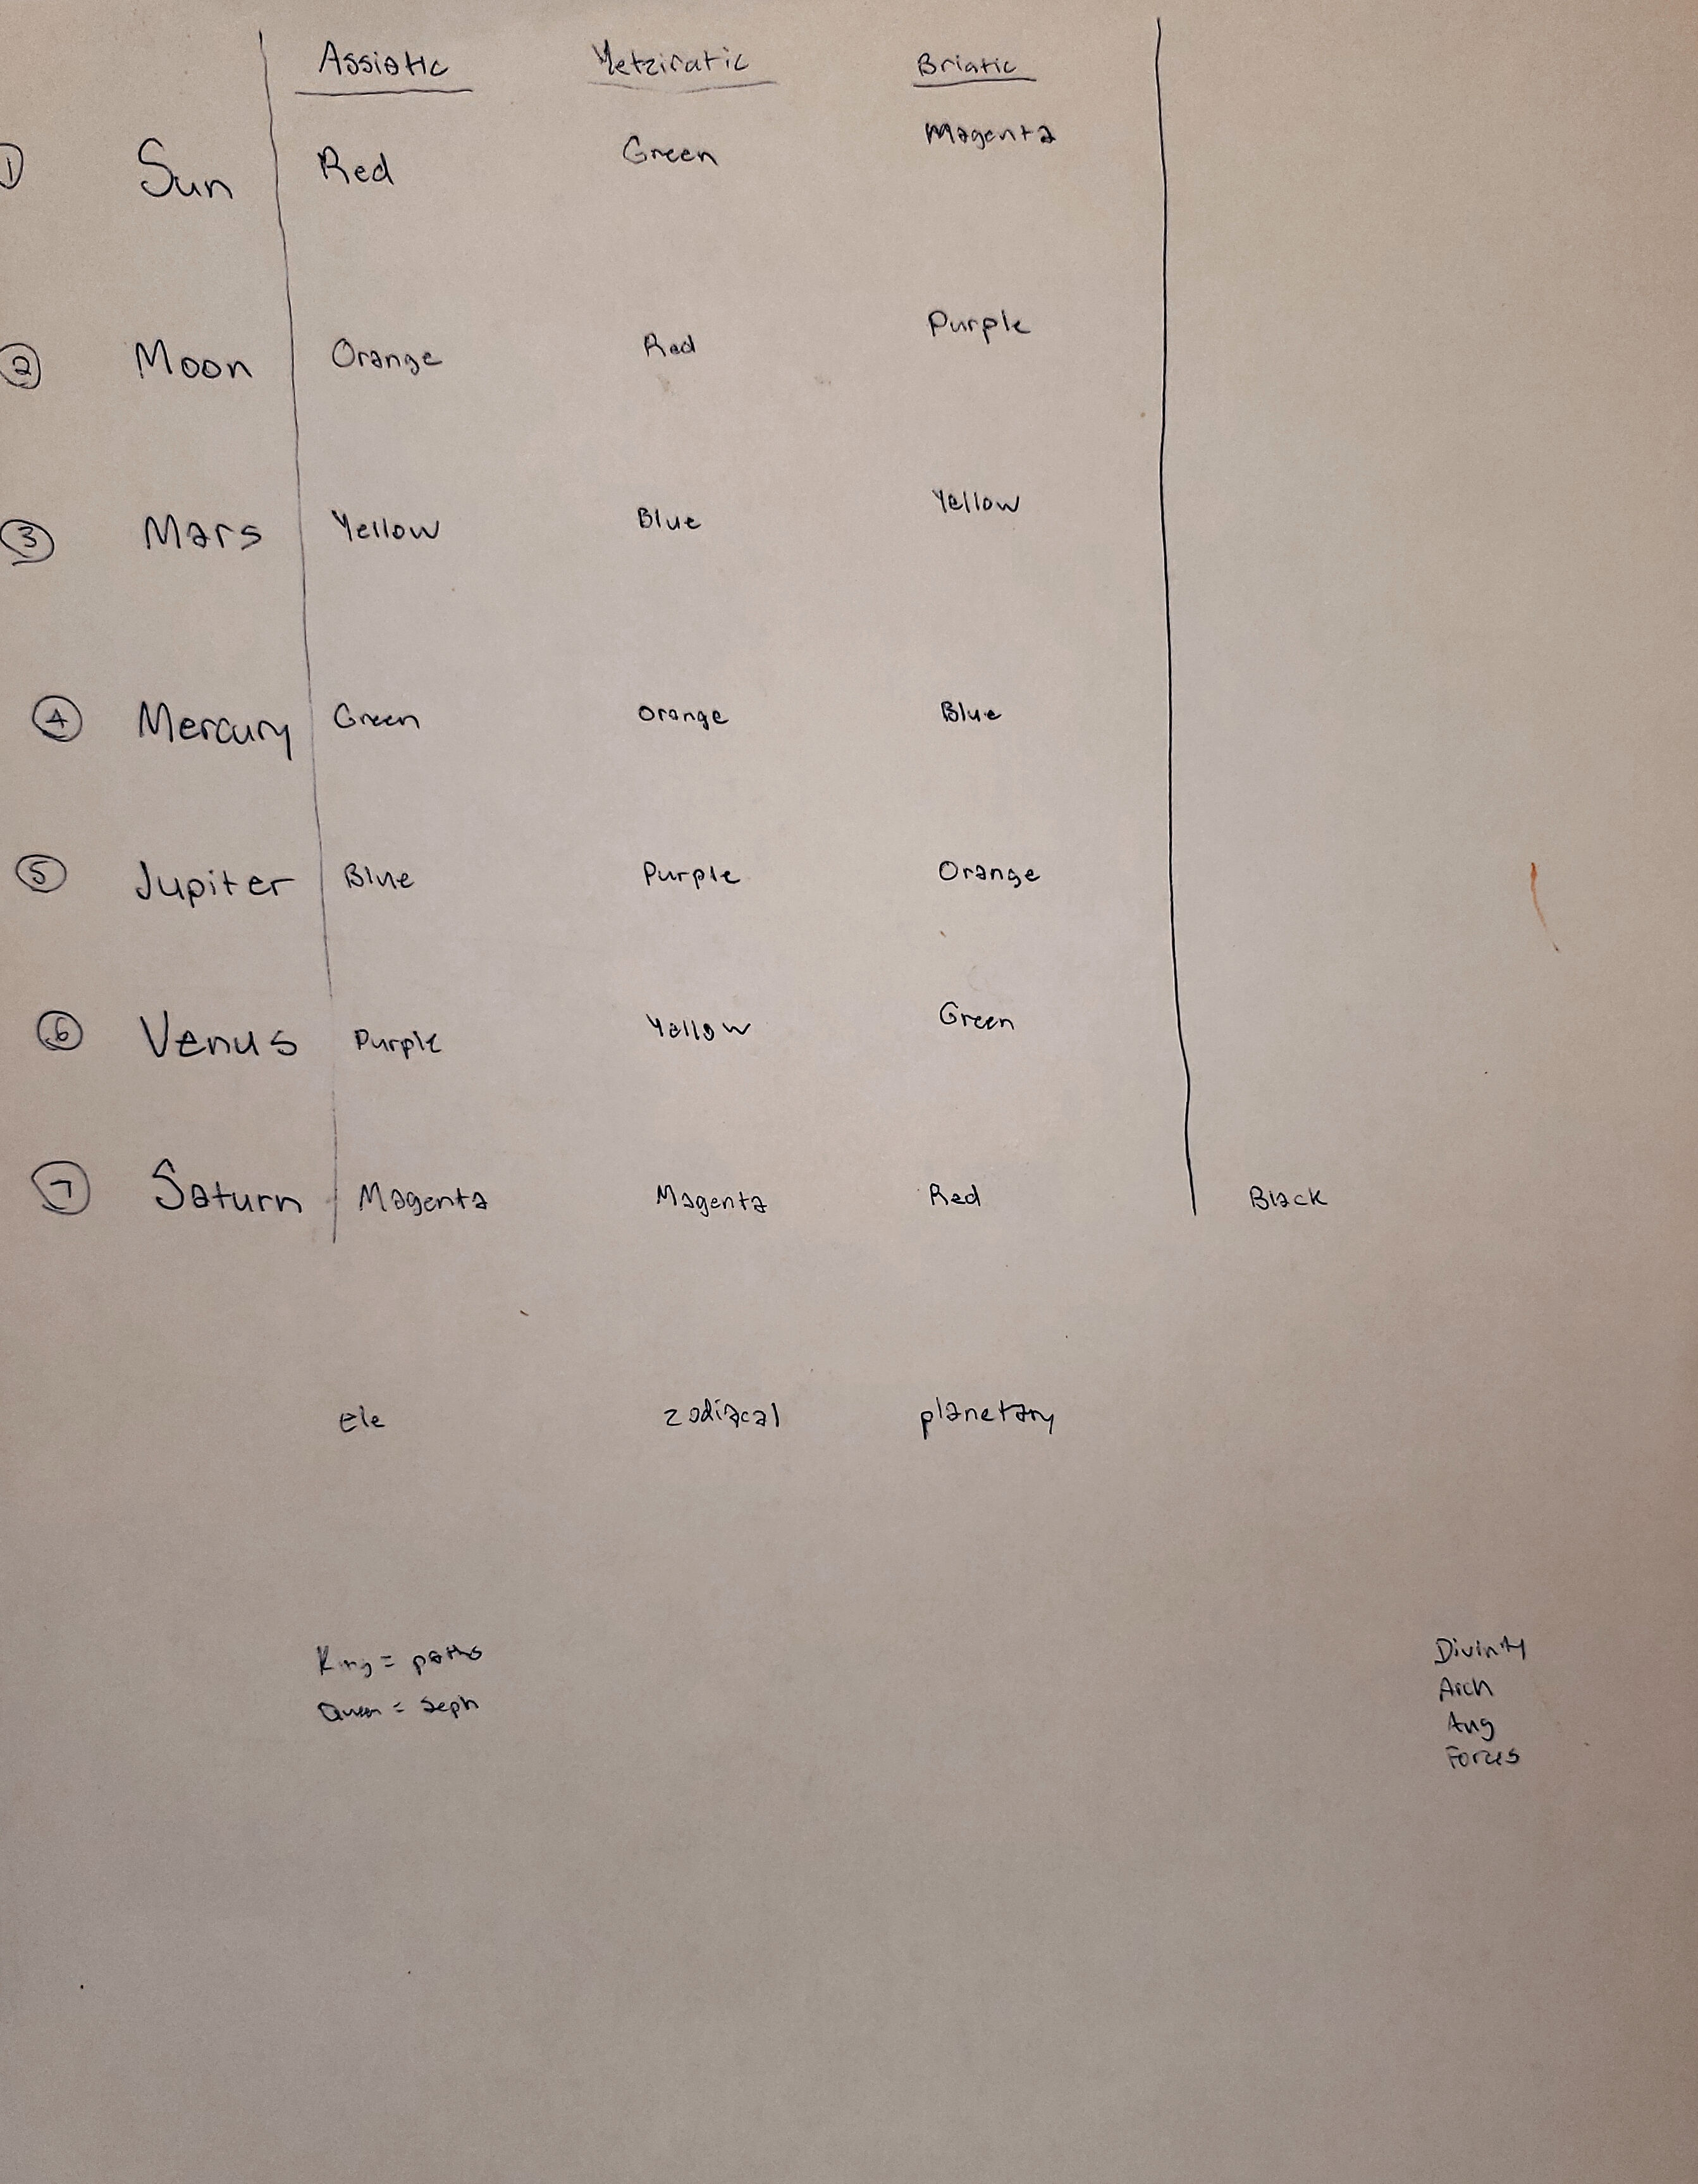 Assiatic Yetziratic Briatic
1 Sun Red Green Magenta
2 Moon Orange Red Purple
3 Mars Yellow Blue Yellow
4 Mercury Green Orange Blue
5 Jupiter Blue Purple Orange
6 Venus Purple Yellow Green
7 Saturn Magenta Magenta Red Black
Ele zodiacal planetary
King = paths
Queen = Seph
Divinity
Arch
Ang
Forces